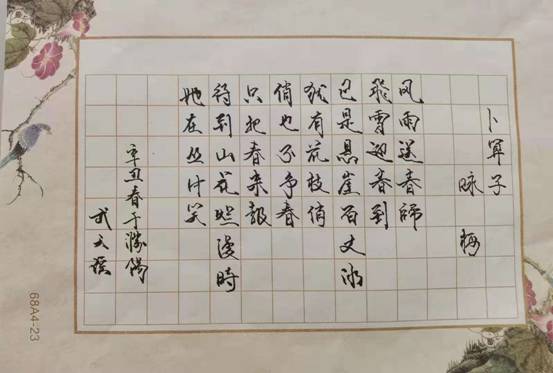 卜算子
咏梅
风雨送春歸
飛雪迎春到
已是悬崖百丈冰
犹有花枝俏
俏也不争春
只把春来報
待到山花烂漫時
她在丛中笑
辛丑春于
68A4-23